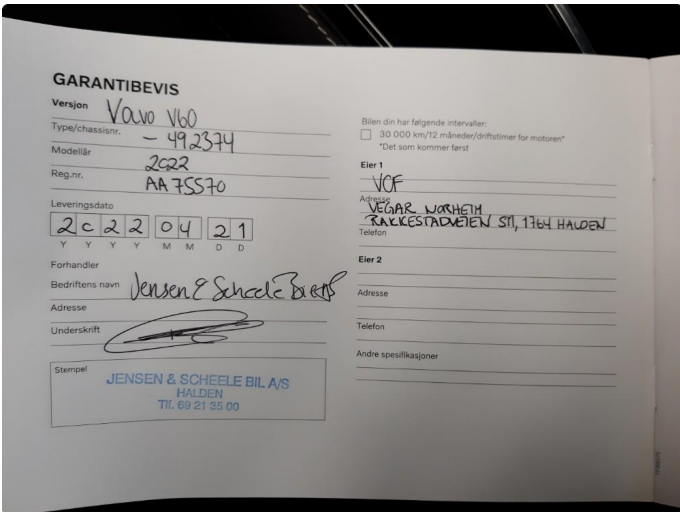 GARANTIBEVIS
Versjon Vovo V60
Type/chassisnr. - 492374
Modellår 2022
Reg.nr. AA 75570
Leveringsdato
2022 04 21
Y Y Y Y M M D D
Forhandler
Bedriftens navn Jensen & Scheele Bil A/S
Adresse
Underskrift
Stempel
JENSEN & SCHEELE BIL A/S
HALDEN
Tlf. 69 21 35 00
Bilen din har følgende intervaller:
30 000 km/12 måneder/driftstimer for motoren*
*Det som kommer først
Eier 1
VCF
Adresse VEGAR NORHEIM
RAKKESTADVEIEN 1764 HALDEN
Telefon
Eier 2
Adresse
Telefon
Andre spesifikasjoner